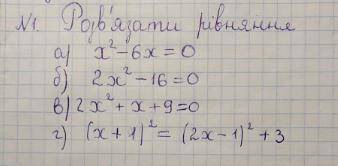 №1. Розв'язати рівняння
а) x²-6x=0
б) 2x²-16=0
в) 2x²+x+9=0
г) (x+1)²=(2x-1)²+3